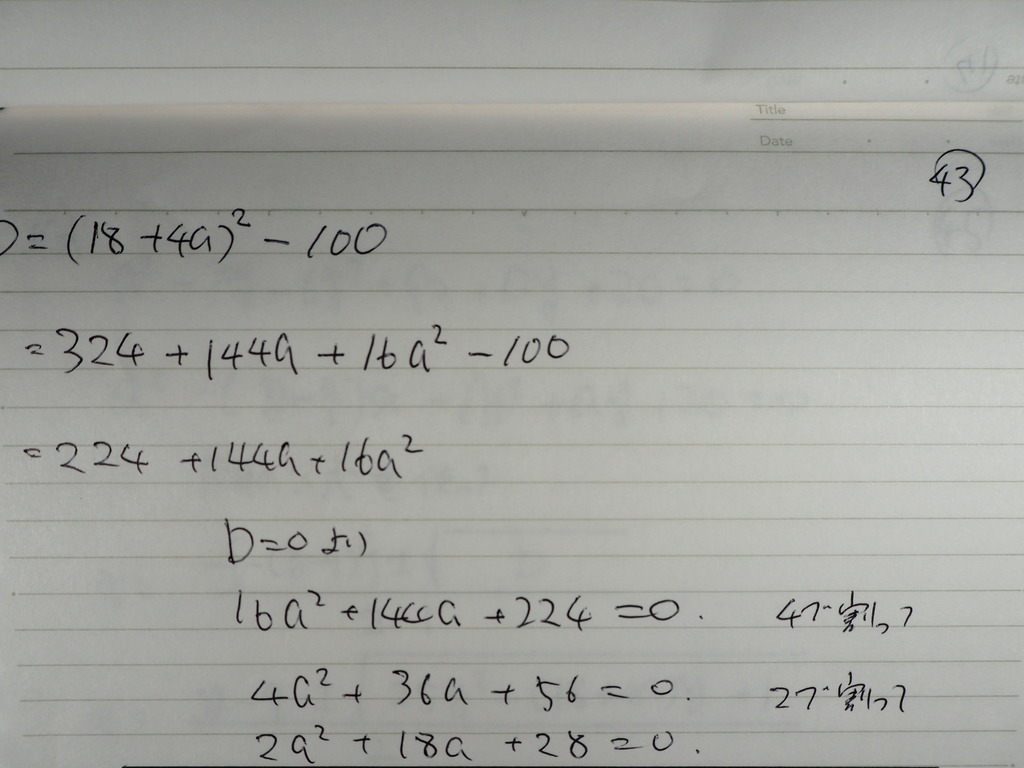 Title
Date
43
D=(18+4a)²-100
=324+144a+16a²-100
=224+144a+16a²
D=0より
16a²+144a+224=0. 4で割って
4a²+36a+56=0. 2で割って
2a²+18a+28=0.